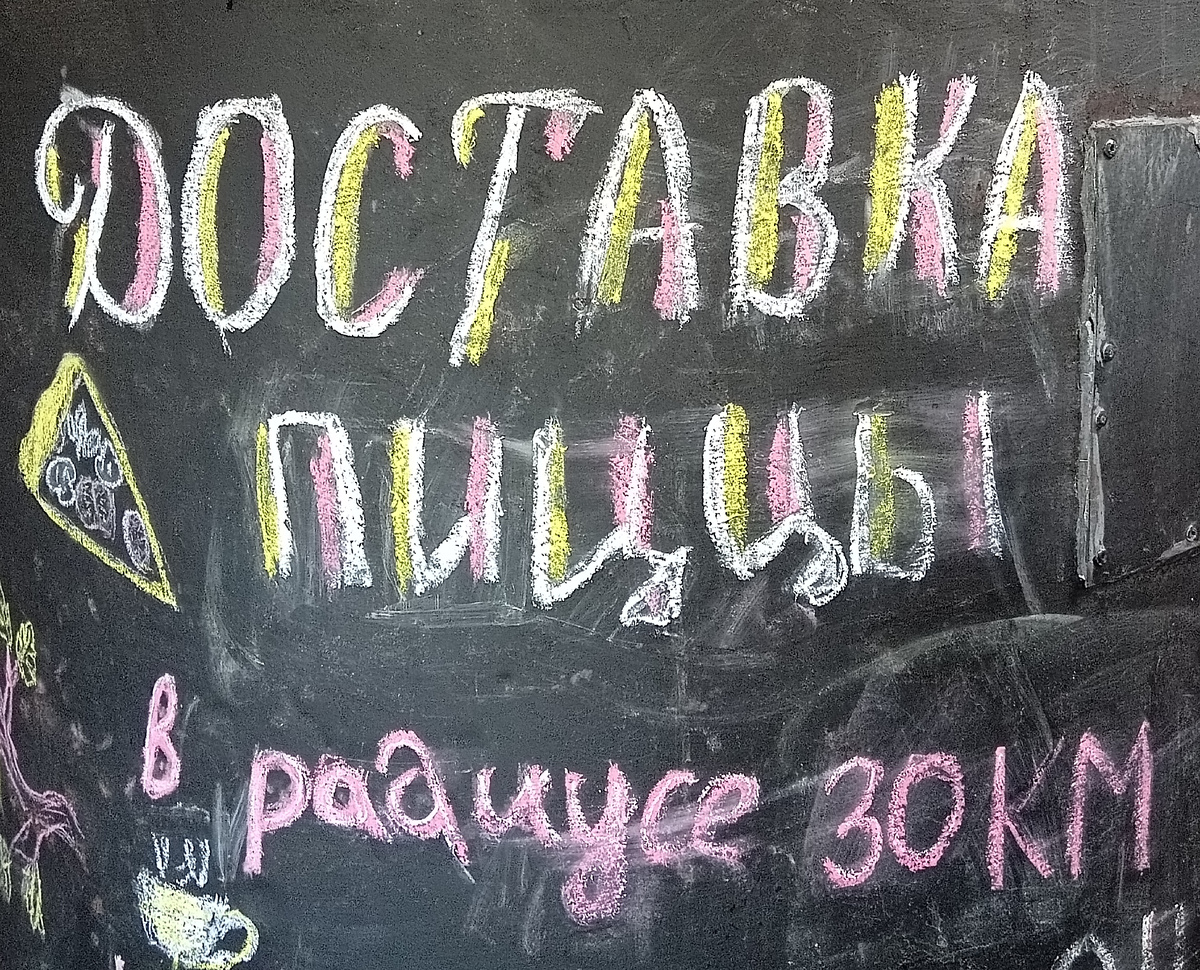 ДОСТАВКА
ПИЦЦЫ
в радиусе 30КМ